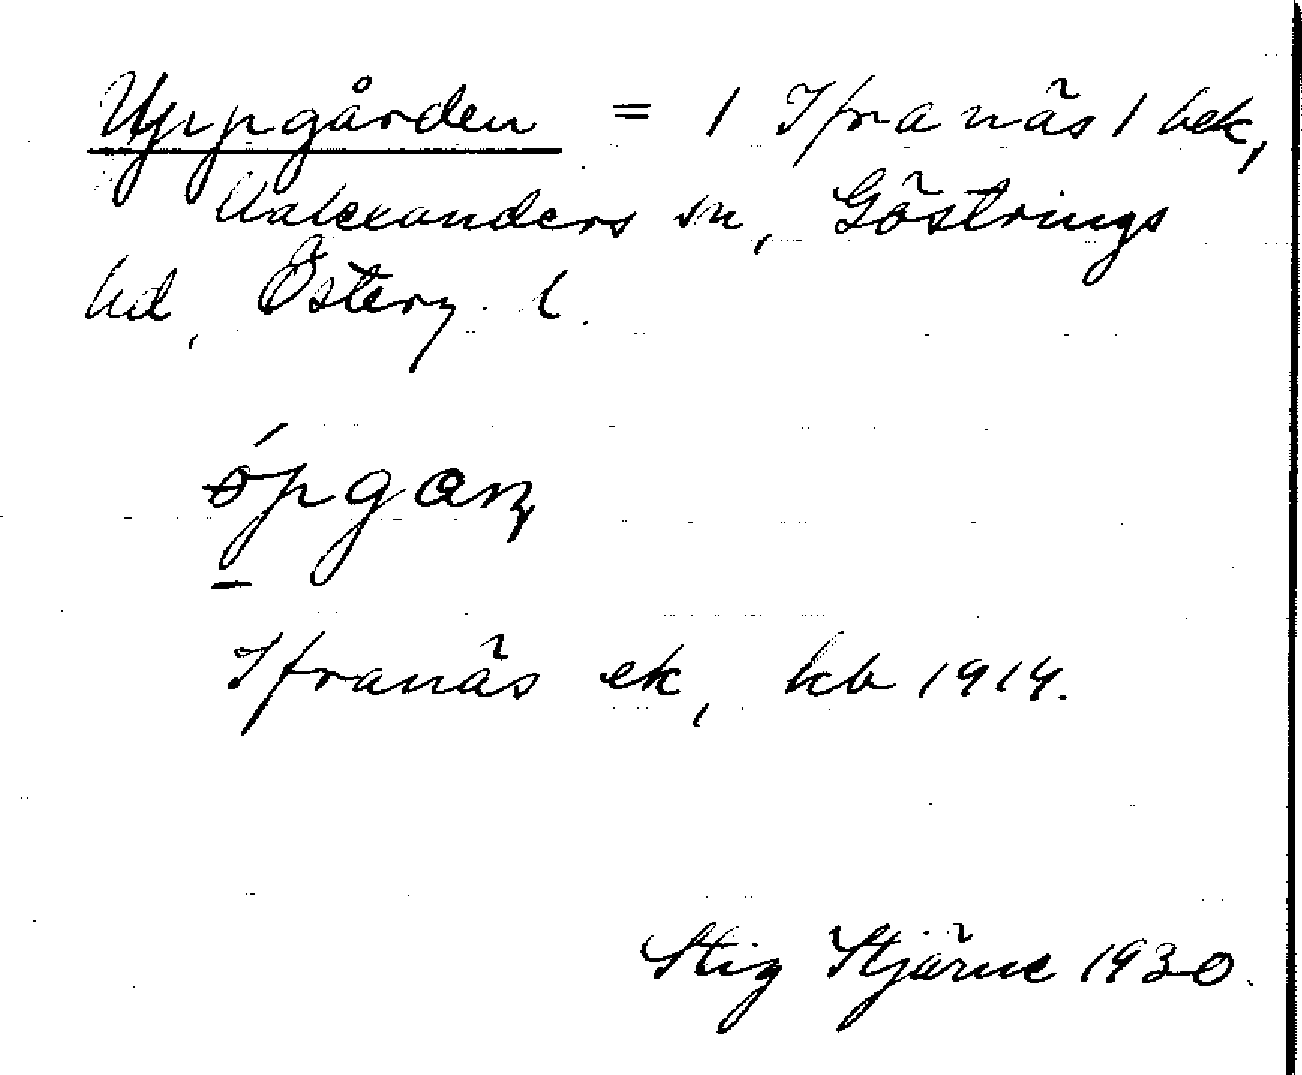 Uppgården = 1 Ifranäs 1 bek,
Valexanders sn, Göstrings
hd, Österg. l.
ópgaɳ
Ifranäs ek, kb 1914.
Stig Stjärne 1930.